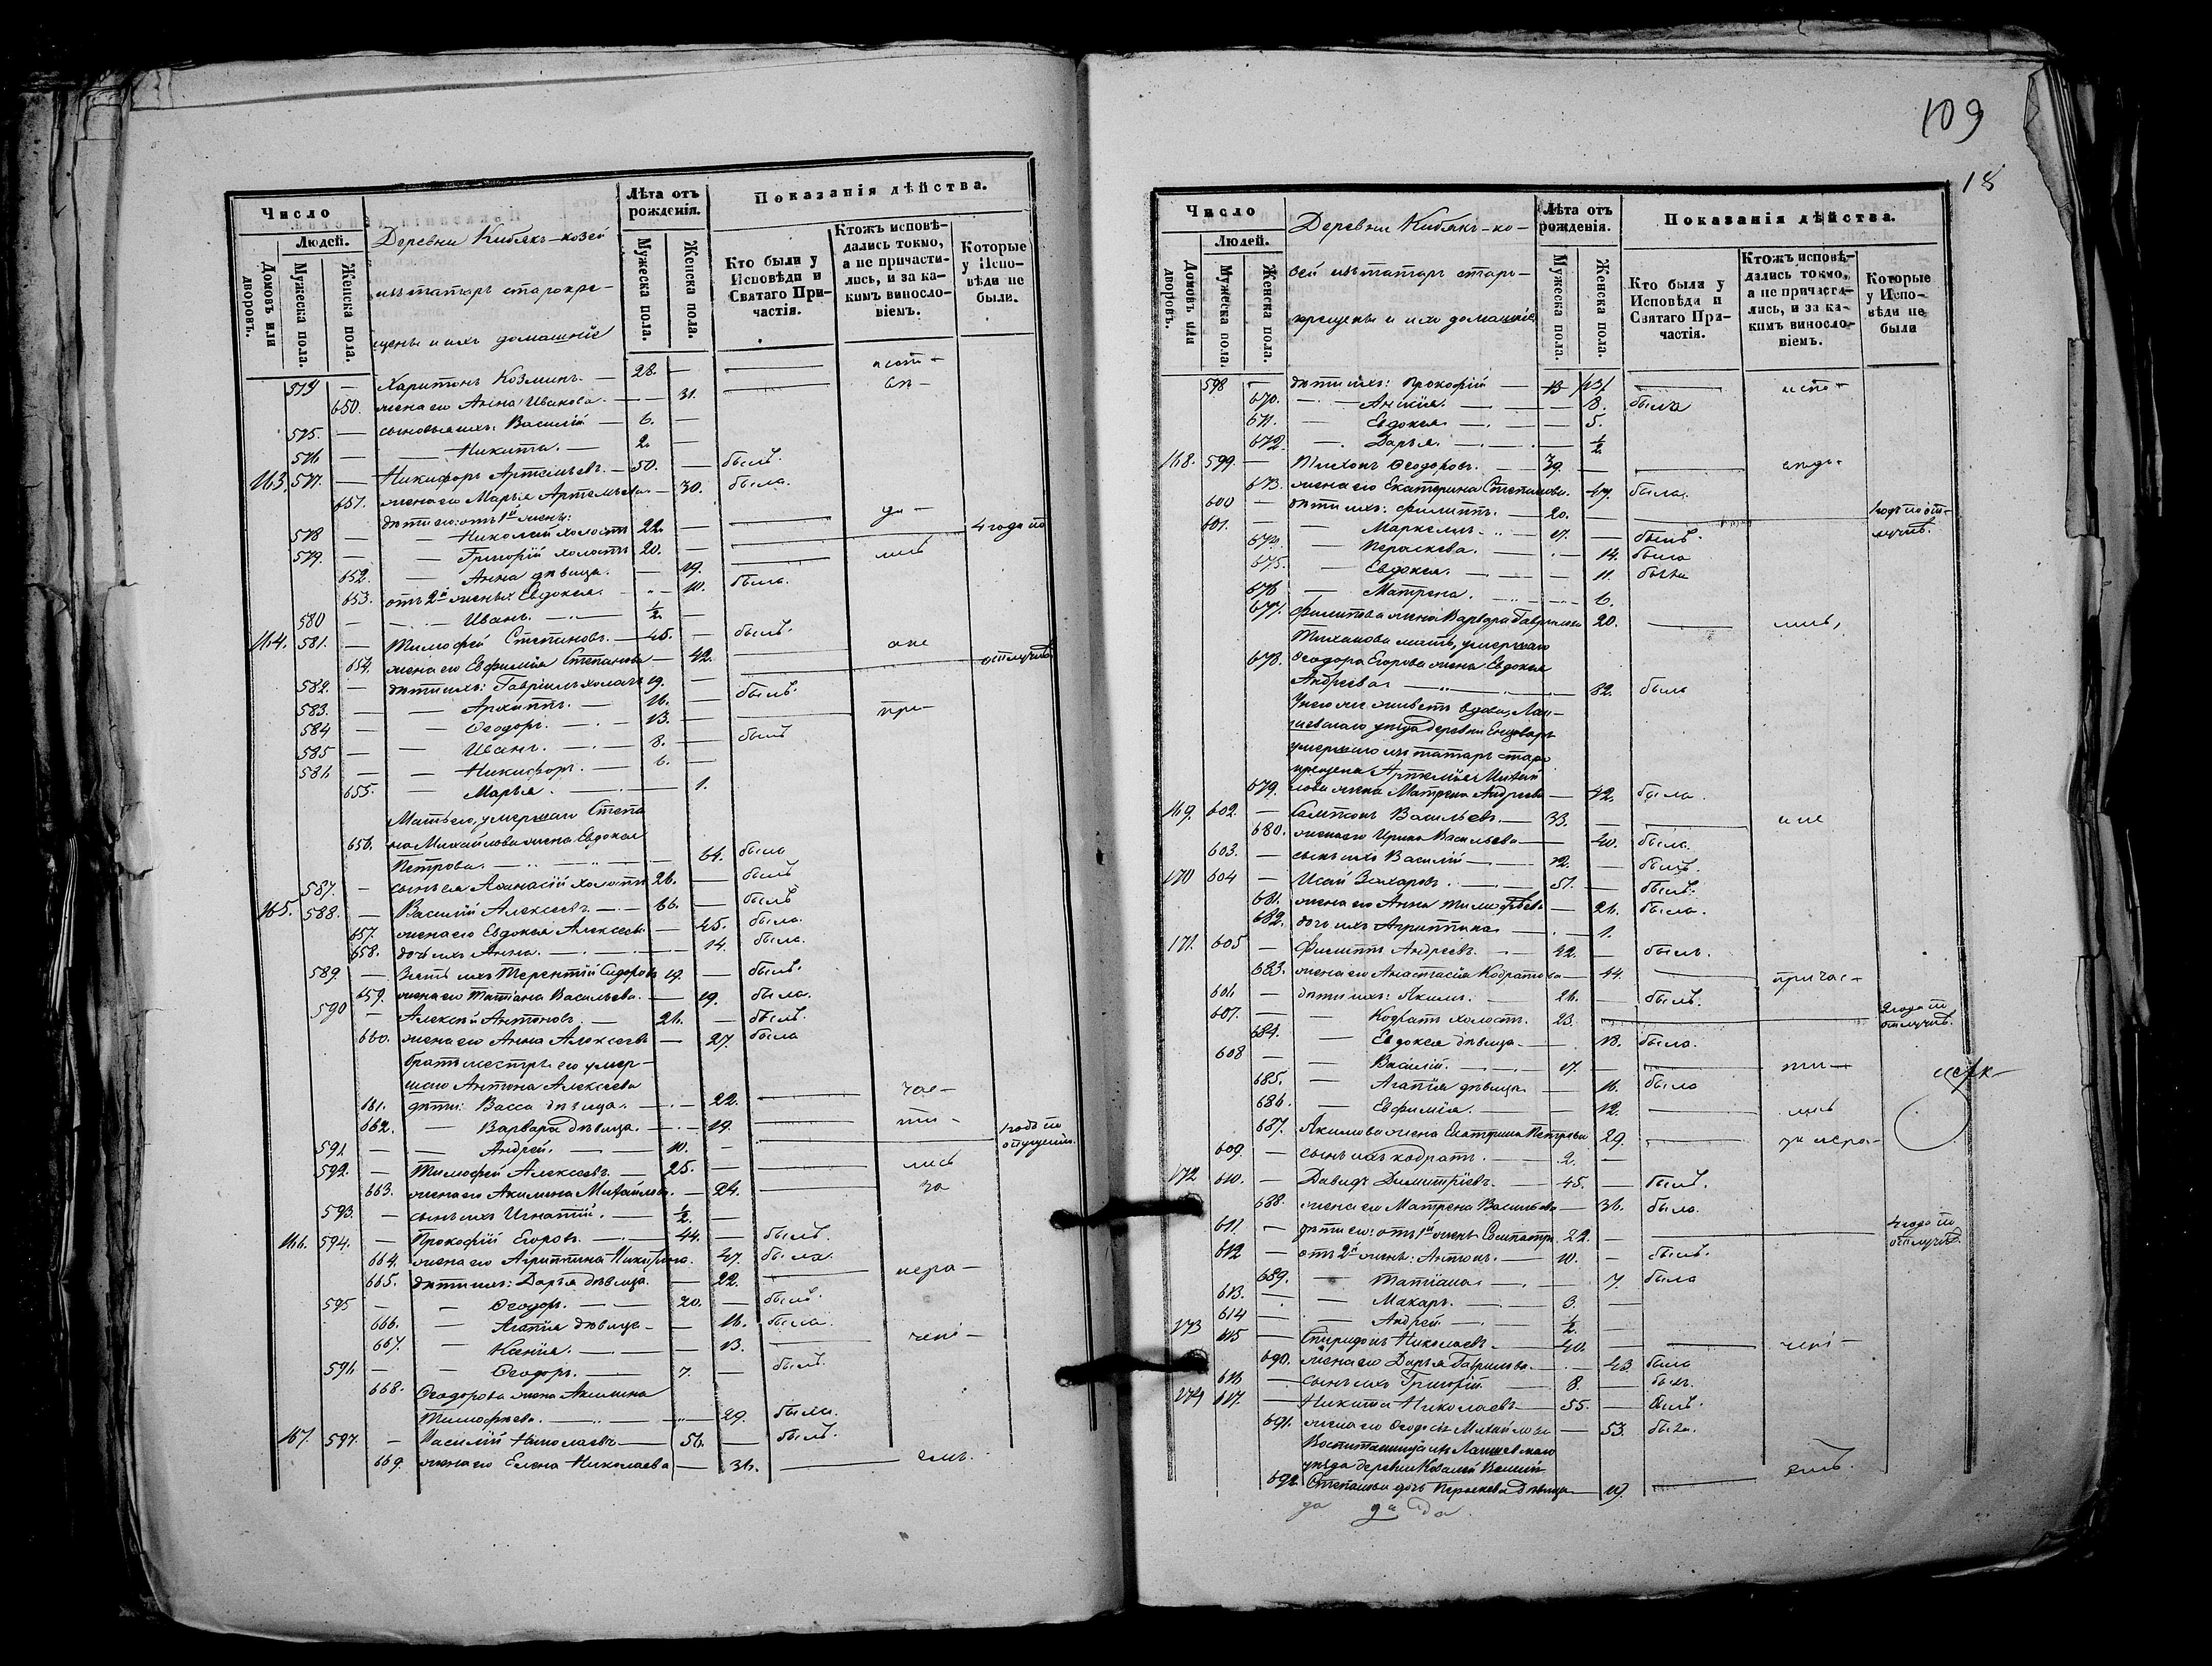 109
18
Число
Людей.
Домовъ или дворовъ.
Мужеска пола.
Женска пола.
Деревни Кибякъ-козей
изъ татаръ старокре-
щены и ихъ домашніе
Лѣта отъ рожденія.
Мужеска пола.
Женска пола.
Показанія дѣйства.
Кто были у Исповѣди и Святаго Причастія.
Ктожъ исповѣдались токмо, а не причастились, и за какимъ винословіемъ.
Которые у Исповѣди не были.
574 — Харитонъ Козминъ. — 28. —
650. жена его Анна Иванова. — 31.
575. — сыновья ихъ: Василій — 6. —
576 — Никита. — 2. —
163. 577. — Никифоръ Артемьевъ. — 50. — былъ.
651. жена его Марья Артемьева — 30. была.
дѣти его: отъ 1й жены:
578 — Николай холостъ 22. —
579. — Григорій холостъ 20. — 4 года по
652. — Анна дѣвица. — 19. лись
653. отъ 2й жены: Евдокія. — 10. была.
580 — Иванъ. — ½ —
164. 581. — Тимофей Степановъ. — 45. — былъ.
654. жена его Евфимія Степанова — 42. а не
582. — дѣти ихъ: Гавріилъ холостъ 19. — отлучкѣ
583. — Архиппъ. — 16. — былъ.
584 — Ѳеодоръ. — 13. — при-
585 — Иванъ. — 8. — былъ
586 — Никифоръ. — 6. —
655. — Марья. — 1.
Мать его, умершаго Степа
656. на Михайлова жена Евдокія
Петрова. — 64. была
587. — сынъ ея Аѳанасій холостъ 26. — былъ
165. 588. — Василій Алексеевъ. — 66. — былъ
657. жена его Евдокія Алексеева — 45. была.
658. дочь ихъ Анна. — 14. была.
589 — Зять ихъ Терентій Сидоровъ 19. — былъ.
659. жена его Татіана Васильева. — 19. была.
590 — Алексѣй Антоновъ. — 26. — былъ.
660. жена его Анна Алексеева — 27. была
умер-
шаго Антона Алексеева
661. дѣти: Васса дѣвица. — 22. час-
662. — Варвара дѣвица. — 19. ти-
591 — Андрей. — 10. — 1 годъ по
592. — Тимофей Алексеевъ. — 25. — лись
663. жена его Акилина Михайлова. — 24. за
593. — сынъ ихъ Игнатій. — ½ —
166. 594. — Прокофій Егоровъ. — 44. — былъ.
664. жена его Агриппина Никифорова. 47. была.
665. дѣти ихъ: Дарья дѣвица. — 22. нера-
595 — Ѳеодоръ. — 20. — былъ.
666. — Агапія дѣвица — 16. была.
667. — Ксенія. — 13. чені-
596 — Ѳеодоръ. — 7. — былъ.
668. Ѳеодорова жена Акилина
Тимофѣева. — 29. была.
167. 597. — Василій Николаевъ — 56. — былъ.
669. жена его Елена Николаева — 36. емъ.
Число
Людей.
Домовъ или дворовъ.
Мужеска пола.
Женска пола.
Деревни Кибякъ-ко-
зей изъ татаръ старо-
крещены и ихъ домашніе
Лѣта отъ рожденія.
Мужеска пола.
Женска пола.
Показанія дѣйства.
Кто были у Исповѣди и Святаго Причастія.
Ктожъ исповѣдались токмо, а не причастились, и за какимъ винословіемъ.
Которые у Исповѣди не были
598 — дѣти ихъ: Прокофій — 13 испо-
670. — 8. была
671. — Евдокія. — 5.
672. — Дарья. — ½
168. 599 — Тихонъ Ѳеодоровъ. — 39. —
673. жена его Екатерина Степанова. 47. была.
600 — дѣти ихъ: Филиппъ. — 20. — 1 годъ по от-
601. — Маркелъ. — 17. — былъ. лучкѣ.
674. — Пераскева. — 14. была
675. — Евдокія. — 11. была
676 — Матрена. — 6.
677. Филиппова жена Варвара Гаврилова 20. лись,
Тихонова мать, умершаго
678. Ѳеодора Егорова жена Евдокія
Андреева — 82. была
У него же живетъ вдова, Лаи-
шевскаго уѣзда деревни
умершаго изъ татаръ старо
крещена Артемія Михай
679. лова жена Матрена Андреева — 42. была.
169. 602. — Васильевъ. — 33. — а не
680. жена его Ирина Васильева — 40. была.
603. — сынъ ихъ Василій — 12. — былъ.
170 604 — Исай Захаровъ. — 51. — былъ.
681. жена его Анна Тимофѣева — 26. была.
682. дочь ихъ Агриппина — 1.
171. 605 — Филиппъ Андреевъ. — 42. — былъ.
683. жена его Анастасія Кодратова — 44. причас-
606 — дѣти ихъ: Якимъ. — 26. — былъ.
607. — Кодратъ холостъ. 23. 2 года по отлучкѣ.
684. — Евдокія дѣвица — 18. была.
608 — Василій. — 17. — ти-
685. — Агапія дѣвица — 16. была
686. — Евфимія. — 12. лись
687. Якимова жена Екатерина Петрова 29. за нера-
609. — сынъ ихъ Кодратъ. — 2. —
172 610. — Давидъ Димитріевъ. — 45. — былъ.
688. жена его Матрена Васильева — 36. была.
611. — дѣти его: отъ 1й жены 22. — 4 года по отлучкѣ.
612 — отъ 2й жены: Антонъ. — 10. — былъ.
689. — Татіана — 7. была
613. — Макаръ. — 3. —
614 — Андрей — ½ —
173 615 — Спиридонъ Николаевъ. — 40. — чені-
690. жена его Дарья Гаврилова. — 43. была
616 — сынъ ихъ Григорій. — 8. — былъ.
174 617. — Никита Николаевъ — 55. — былъ.
691. жена его Ѳеодосія Михайлова — 53. была.
Воспитанница изъ Лаишевскаго
уѣзда деревни
692. Степанова дочь Пераскева дѣвица — 19. емъ.